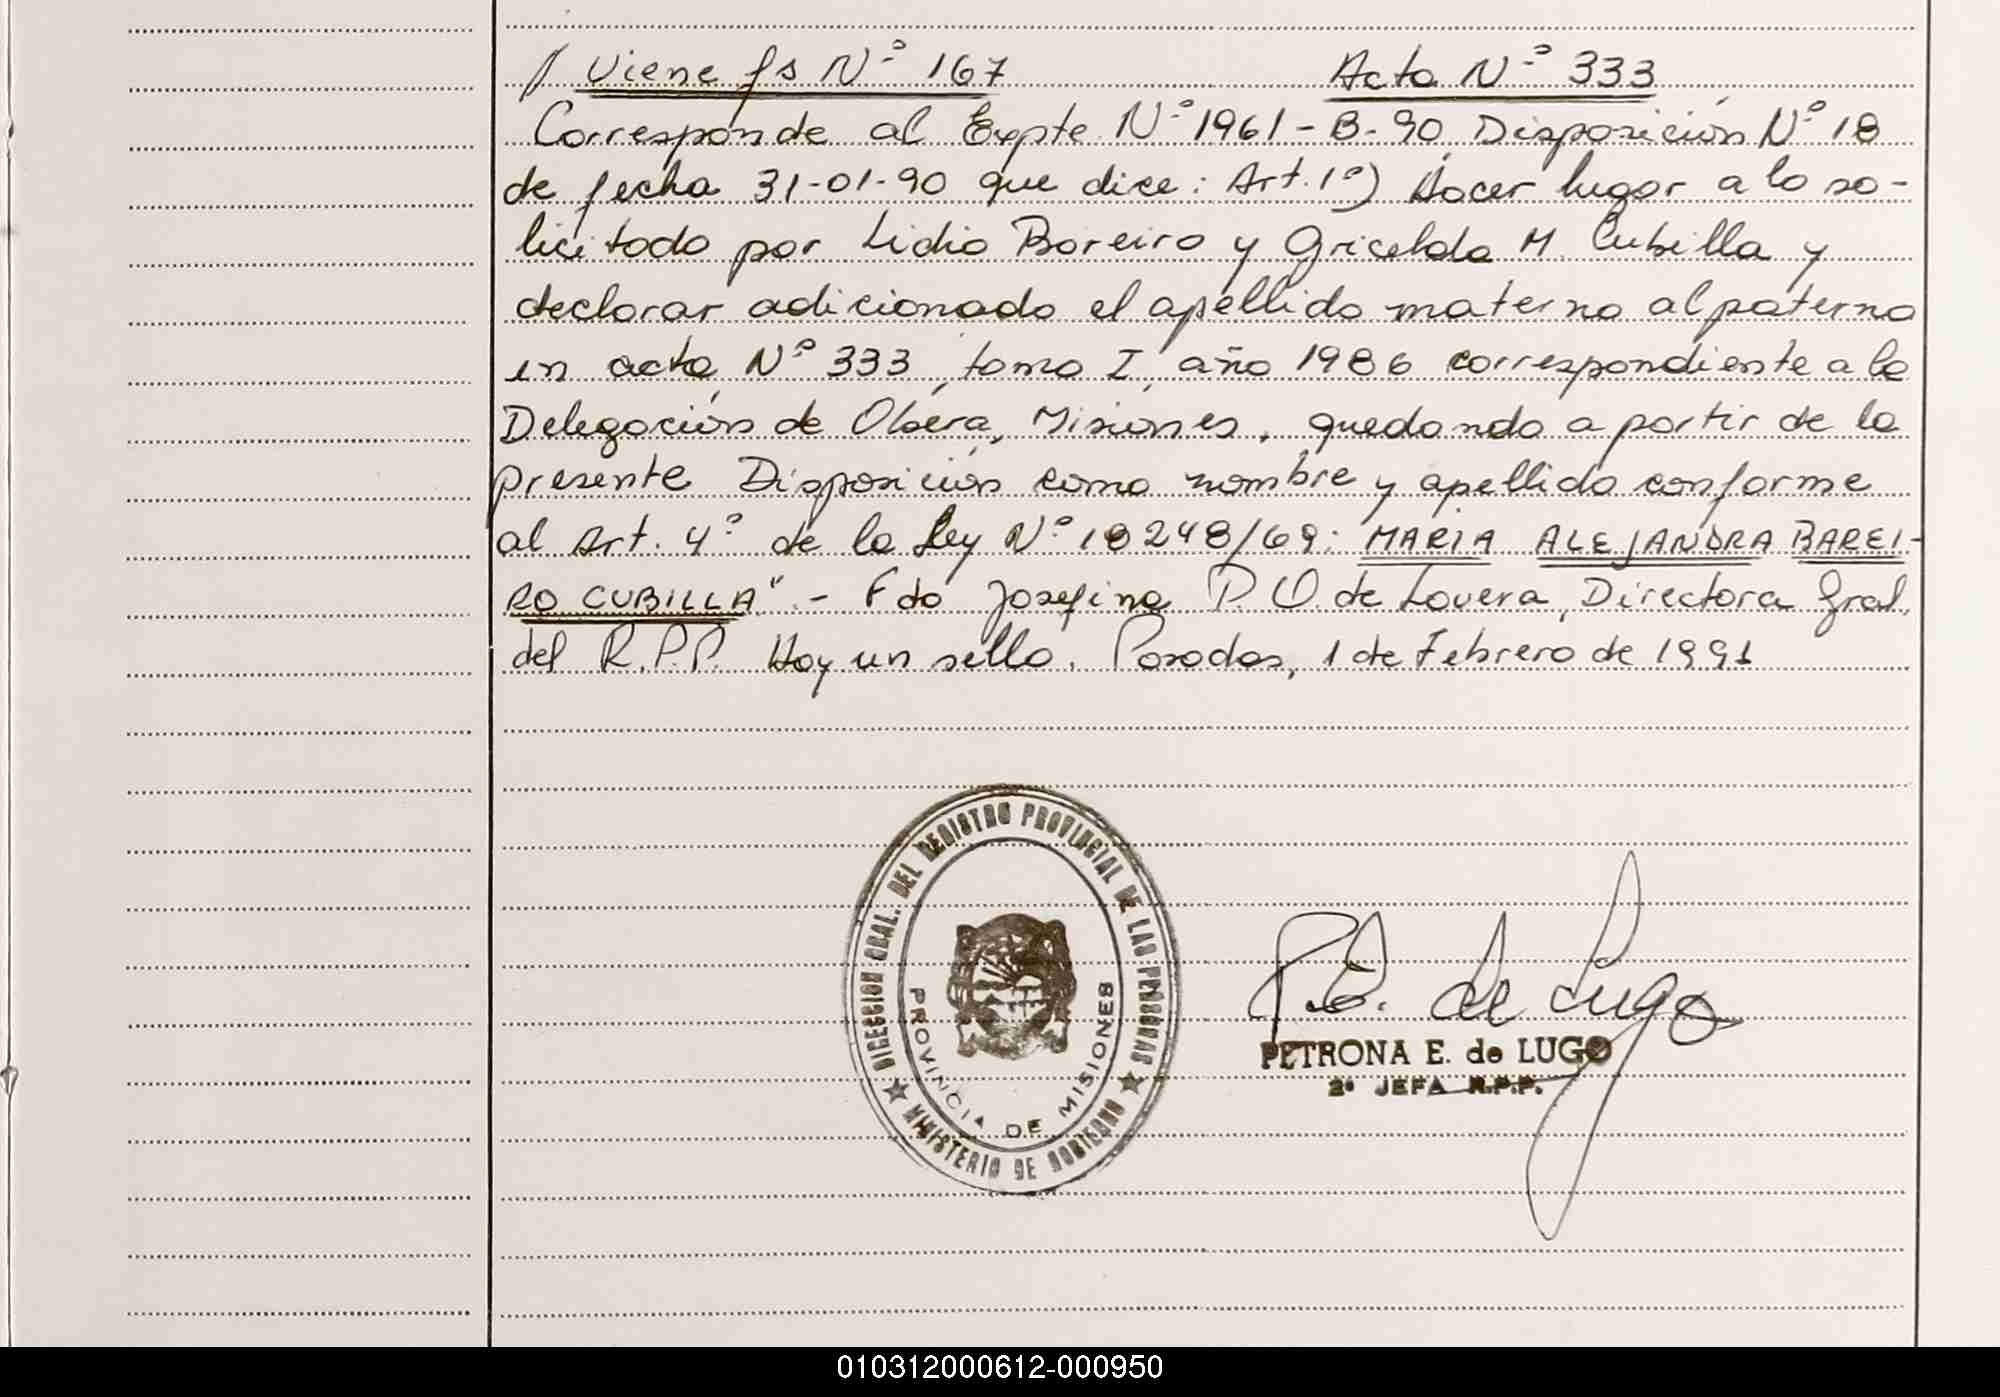 // Viene fs Nº 167 Acta Nº 333
Corresponde al Expte Nº 1961-B-90, Disposición Nº 18
de fecha 31-01-90 que dice: Art. 1º) Hacer lugar a lo so-
licitado por Lidio Bareiro y Gricelda M. Cubilla y
declarar adicionado el apellido materno al paterno
en acta Nº 333, tomo I, año 1986 correspondiente a la
Delegación de Oberá, Misiones, quedando a partir de la
presente Disposición como nombre y apellido conforme
al Art. 4º de la Ley Nº 18248/69: MARIA ALEJANDRA BAREI-
RO CUBILLA" .- Fdo Josefina P. O. de Lovera, Directora Gral.
del R.P.P. Hay un sello. Posadas, 1 de Febrero de 1991
DIRECCION GRAL. DEL REGISTRO PROVINCIAL DE LAS PERSONAS
PROVINCIA DE MISIONES
★ MINISTERIO DE GOBIERNO ★
P.E. de Lugo
PETRONA E. de LUGO
2ª JEFA R.P.P.
010312000612-000950